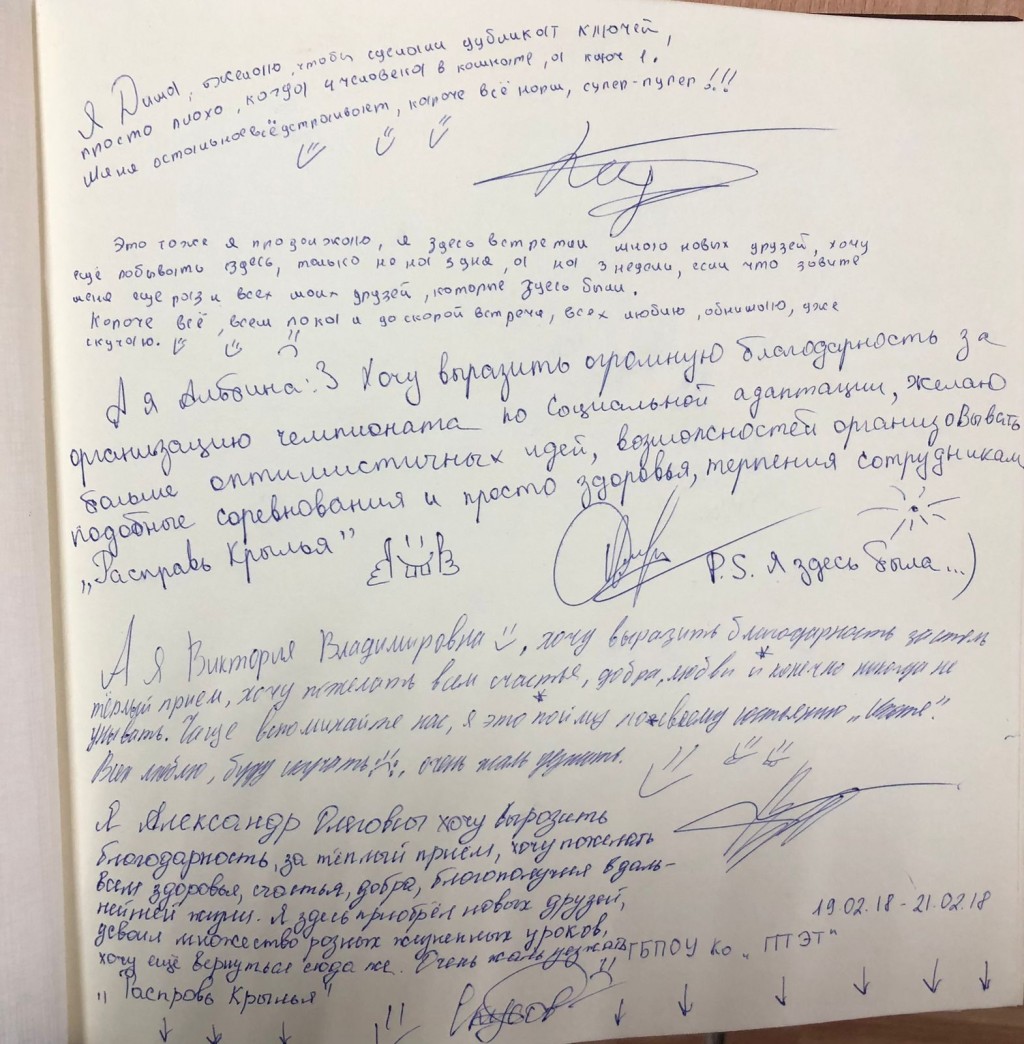 Я Дима, желаю, чтобы сделали дубликат ключей,
просто плохо, когда 4 человека в комнате, а ключ 1.
Меня остальное всё устраивает, короче всё норм, супер-пупер!!!
Это тоже я продолжаю, я здесь встретил много новых друзей, хочу
ещё побывать здесь, только не на 3 дня, а на 3 недели, если что зовите
меня еще раз и всех моих друзей, которые здесь были.
Короче всё, всем пока и до скорой встречи, всех люблю, обнимаю, уже
скучаю.
А я Альбина:3 Хочу выразить огромную благодарность за
организацию чемпионата по социальной адаптации, желаю
больше оптимистичных идей, возможностей организовывать
подобные соревнования и просто здоровья, терпения сотрудникам
„Расправь Крылья”
P.S. Я здесь была...)
А я Виктория Владимировна, хочу выразить благодарность за столь
тёплый прием, хочу пожелать всем счастья, добра, любви и конечно никогда не
унывать. Чаще вспоминайте нас, я это пойму по своему состоянию „Икоте”.
Всех люблю, буду скучать, очень жаль уезжать.
Я Александр Олегович хочу выразить
благодарность, за тёплый прием, хочу пожелать
всем здоровья, счастья, добра, благополучия в даль-
нейшей жизни. Я здесь приобрёл новых друзей,
усвоил множество разных жизненных уроков,
хочу ещё вернуться сюда же. Очень жаль уезжать
"Расправь Крылья"
19.02.18 - 21.02.18
ГБПОУ КО „ТТЭТ"